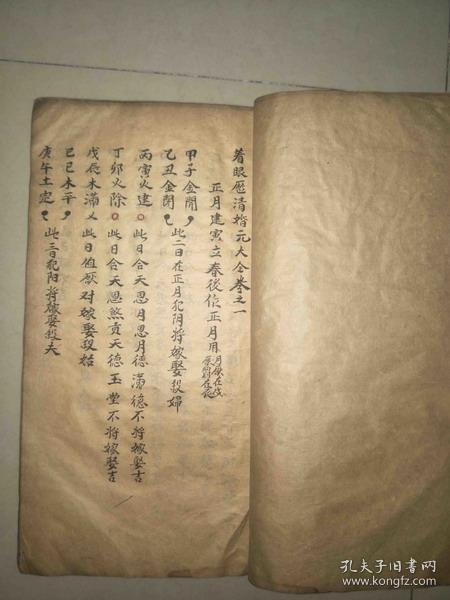 着眼历清婚元大全卷之一
正月建寅立春後作正月用
月厌在戌
厌對在辰
甲子金開
乙丑金閉
此二日在正月犯阴將嫁娶殺婦
丙寅火建 此日合天恩月恩月德滿德不將嫁娶吉
丁卯火除 此日合天恩煞贡天德玉堂不將嫁娶吉
戊辰木滿 此日值厭对嫁娶殺姑
己巳木平
庚午土定
此二日犯阳將嫁娶殺夫
孔夫子旧书网
www.kongfz.com